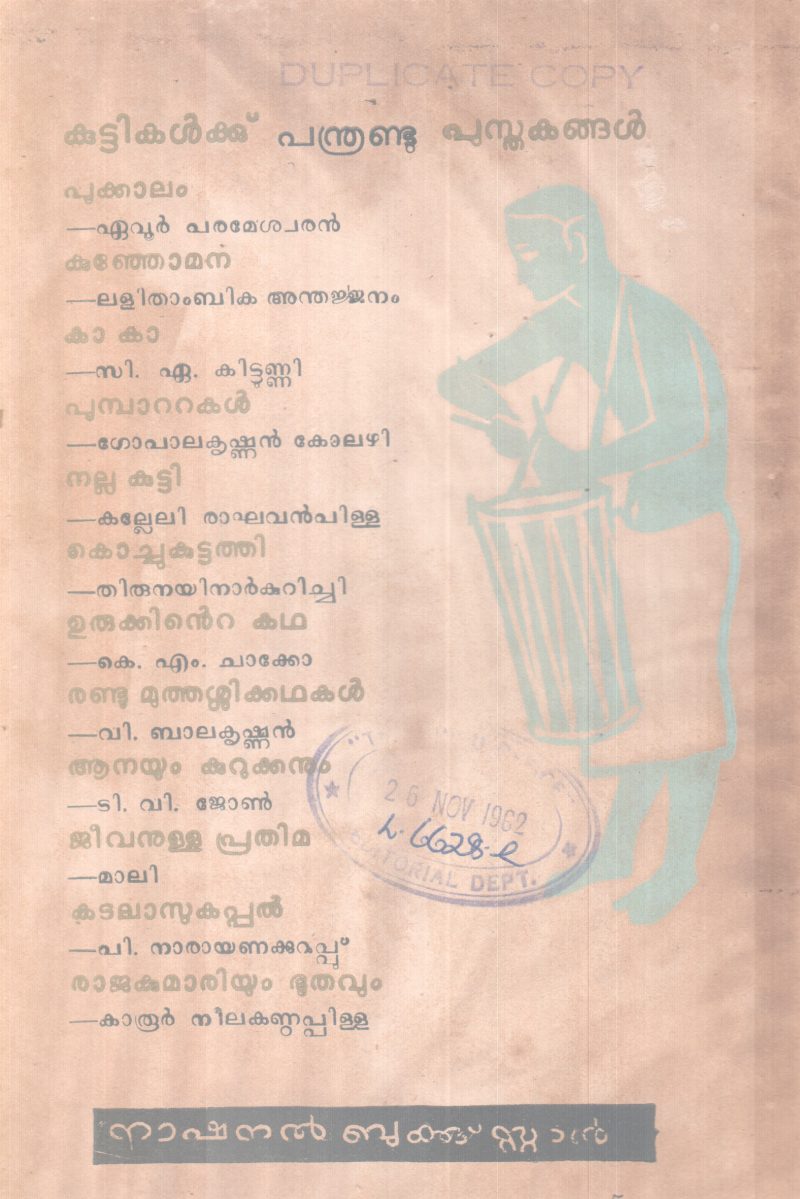 DUPLICATE COPY
കുട്ടികൾക്കു് പന്ത്രണ്ടു പുസ്തകങ്ങൾ
പൂക്കാലം
—ഏവൂർ പരമേശ്വരൻ
കുഞ്ഞോമന
—ലളിതാംബിക അന്തർജ്ജനം
കാ കാ
—സി. ഏ. കിട്ടുണ്ണി
പൂമ്പാററകൾ
—ഗോപാലകൃഷ്ണൻ കോലഴി
നല്ല കുട്ടി
—കല്ലേലി രാഘവൻപിള്ള
കൊച്ചുകുട്ടത്തി
—തിരുനയിനാർകുറിച്ചി
ഉരുക്കിൻെറ കഥ
—കെ. എം. ചാക്കോ
രണ്ടു മുത്തശ്ശിക്കഥകൾ
—വി. ബാലകൃഷ്ണൻ
ആനയും കുറുക്കനും
—ടി. വി. ജോൺ
ജീവനുള്ള പ്രതിമ
—മാലി
കടലാസുകപ്പൽ
—പി. നാരായണക്കുറുപ്പു്
രാജകുമാരിയും ഭൂതവും
—കാരൂർ നീലകണ്ഠപ്പിള്ള
26 NOV 1962
L. 6628-e
EDITORIAL DEPT.
നാഷനൽ ബുക്കു് സ്റ്റാൾ